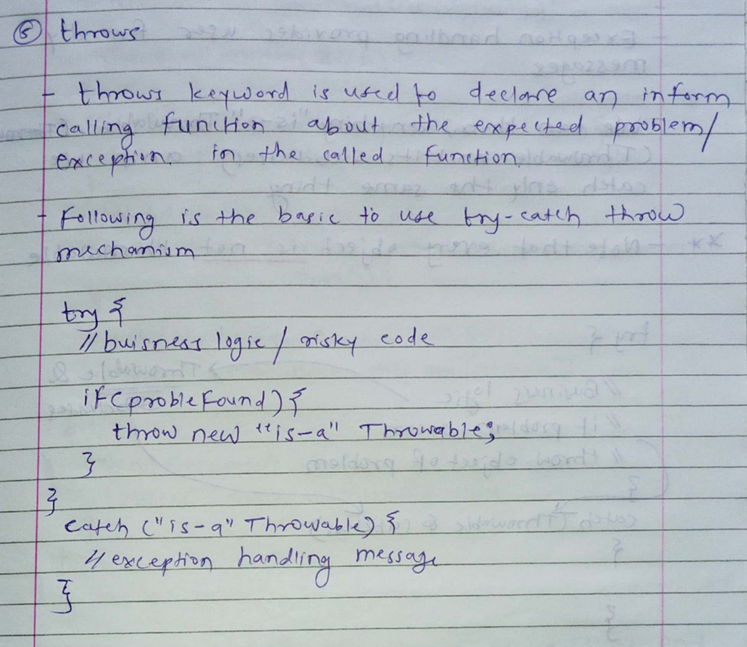 ⑤ throws
- throws keyword is used to declare an inform
calling function about the expected problem/
exception. in the called function.
- Following is the basic to use try-catch throw
mechanism
try {
// buisness logic / risky code
if (proble Found) {
throw new "is-a" Throwable;
}
}
catch ("is-a" Throwable) {
// exception handling message
}